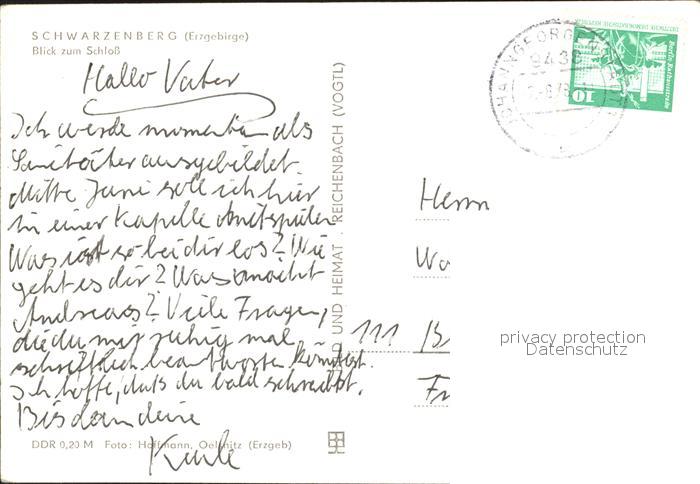 SCHWARZENBERG (Erzgebirge)
Blick zum Schloß
Hallo Vater
Ich werde momentan als
Sanitäter ausgebildet.
Mitte Juni soll ich hier
in einer Kapelle mitspielen
Was ist so bei dir los? Wie
geht es dir? Was macht
Andreas? Viele Fragen,
die du mir ruhig mal
schriftlich beantworten könntest.
Ich hoffe, daß du bald schreibst.
Bis dann deine
DDR 0,20 M Foto: Hoffmann, Oelsnitz (Erzgeb)
D UND HEIMAT · REICHENBACH (VOGTL)
JOHANNGEORGENSTADT
9438
DEUTSCHE DEMOKRATISCHE REPUBLIK
Berlin, Rathausstraße
10
Herrn
Wa
111 B
Fr
privacy protection
Datenschutz